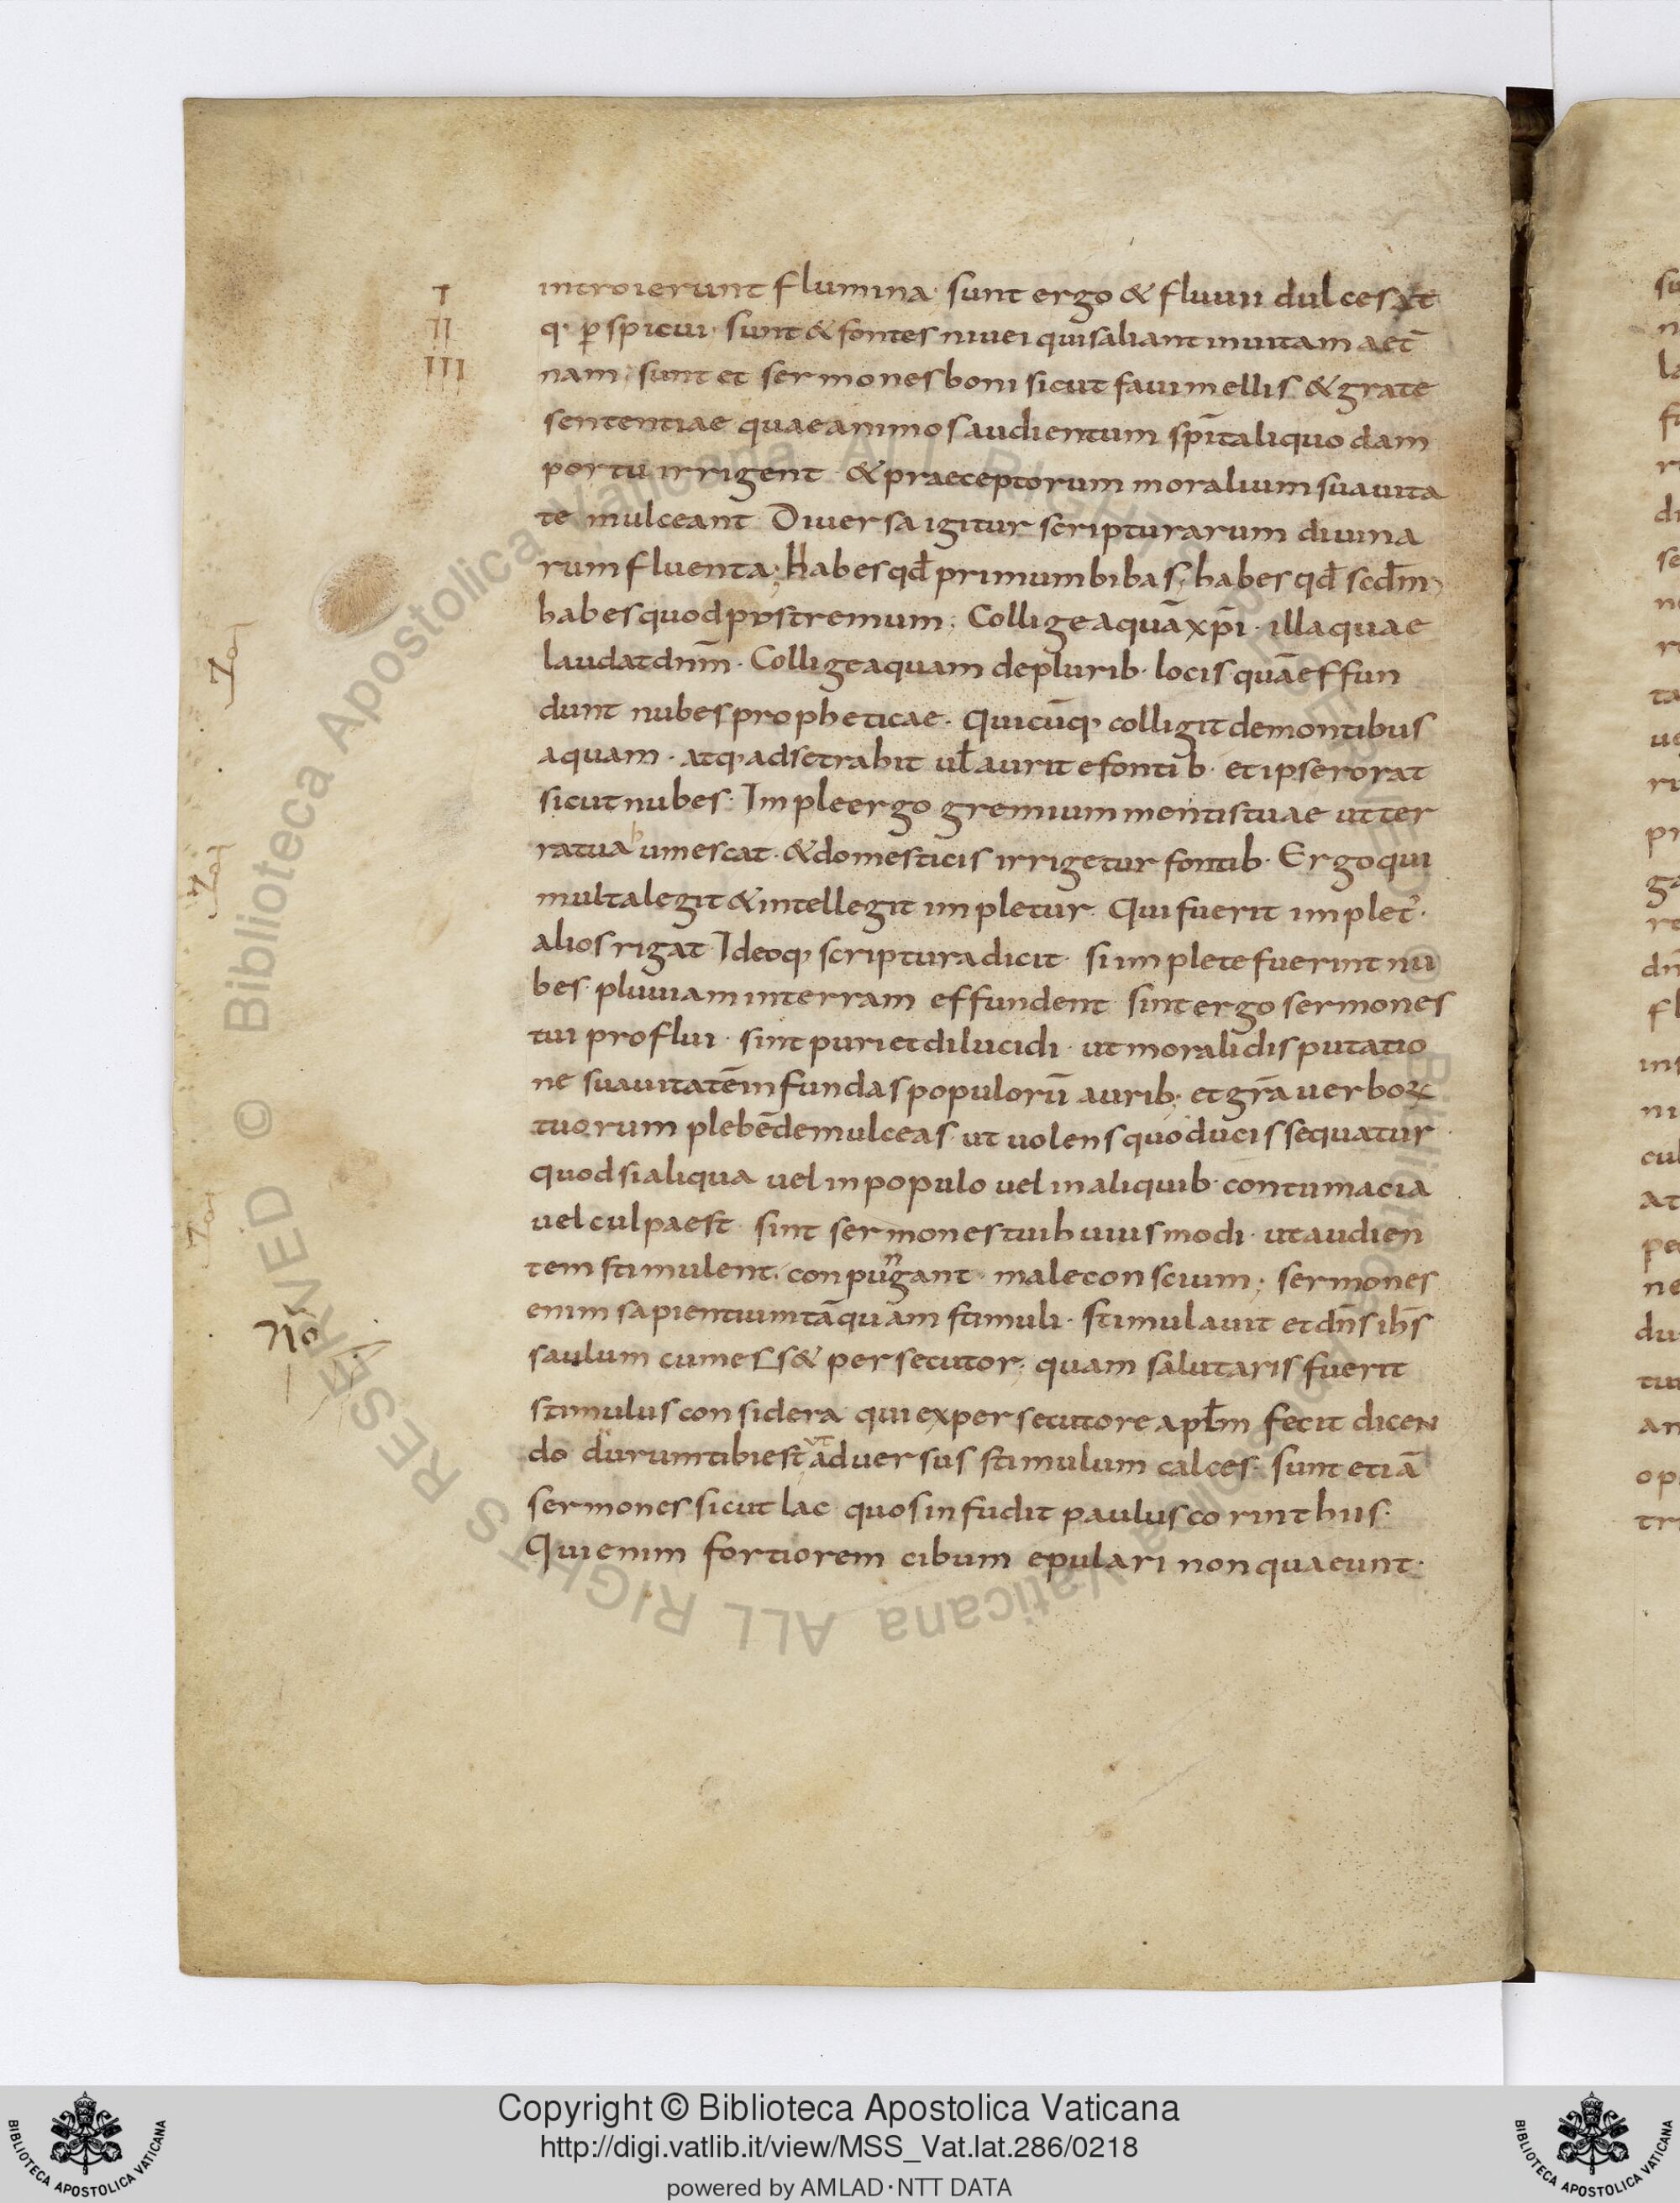 I
II
III
introierunt flumina· sunt ergo & fluuii dulces xt
q· ꝑspicui· sunt & fontes niuei qui saliant inuitam aet̄
nam· sunt et sermones boni sicut faui mellis & grate
sententiae quae animos audientum sp̄itali quodam
portu irrigent & praeceptorum moralium suauita
te mulceant· Diuersa igitur scripturarum diuina
rum fluenta; habes qd̄ primum bibas; habes qd̄ scdm̄;
habes quod postremum; Collige aquā xp̄i· illa quae
laudat dnm̄· Collige aquam de plurib· locis quā effun
dunt nubes propheticae· Quicūq· colligit de montibus
aquam· atq· ad se trahit ul̄ aurit e fontib· et ipse rorat
sicut nubes· Imple ergo gremium mentis tuae ut ter
ra tua humescat· & domesticis irrigetur fontib· Ergo qui
multa legit & intellegit impletur· Qui fuerit implet᷒·
alios rigat Ideoq· scriptura dicit· si implete fuerint nu
bes· pluuiam in terram effundent sint ergo sermones
tui proflui· sint puri et dilucidi· ut morali disputatio
ne suauitatē infundas populorū aurib; et gr̄a uerboꝝ
tuorum plebē demulceas· ut uolens quo ducis sequatur·
quod si aliqua uel in populo uel in aliquib· contumacia
uel culpa est· sint sermones tui huiusmodi· ut audien
tem stimulent· conpungant· male conscium; sermones
enim sapientium tāquam stimuli· stimulauit et dn̄s ih̄s
saulum cum ess& persecutor· quam salutaris fuerit
stimulus considera· qui ex persecutore apl̄m fecit dicen
do durum tibi est ut aduersus stimulum calces· sunt etiā
sermones sicut lac· quos infudit paulus corinthiis·
Qui enim fortiorem cibum epulari non quaeunt·
Nō
Copyright © Biblioteca Apostolica Vaticana
http://digi.vatlib.it/view/MSS_Vat.lat.286/0218
powered by AMLAD·NTT DATA
BIBLIOTECA APOSTOLICA VATICANA
BIBLIOTECA APOSTOLICA VATICANA
© Biblioteca Apostolica Vaticana ALL RIGHTS RESERVED